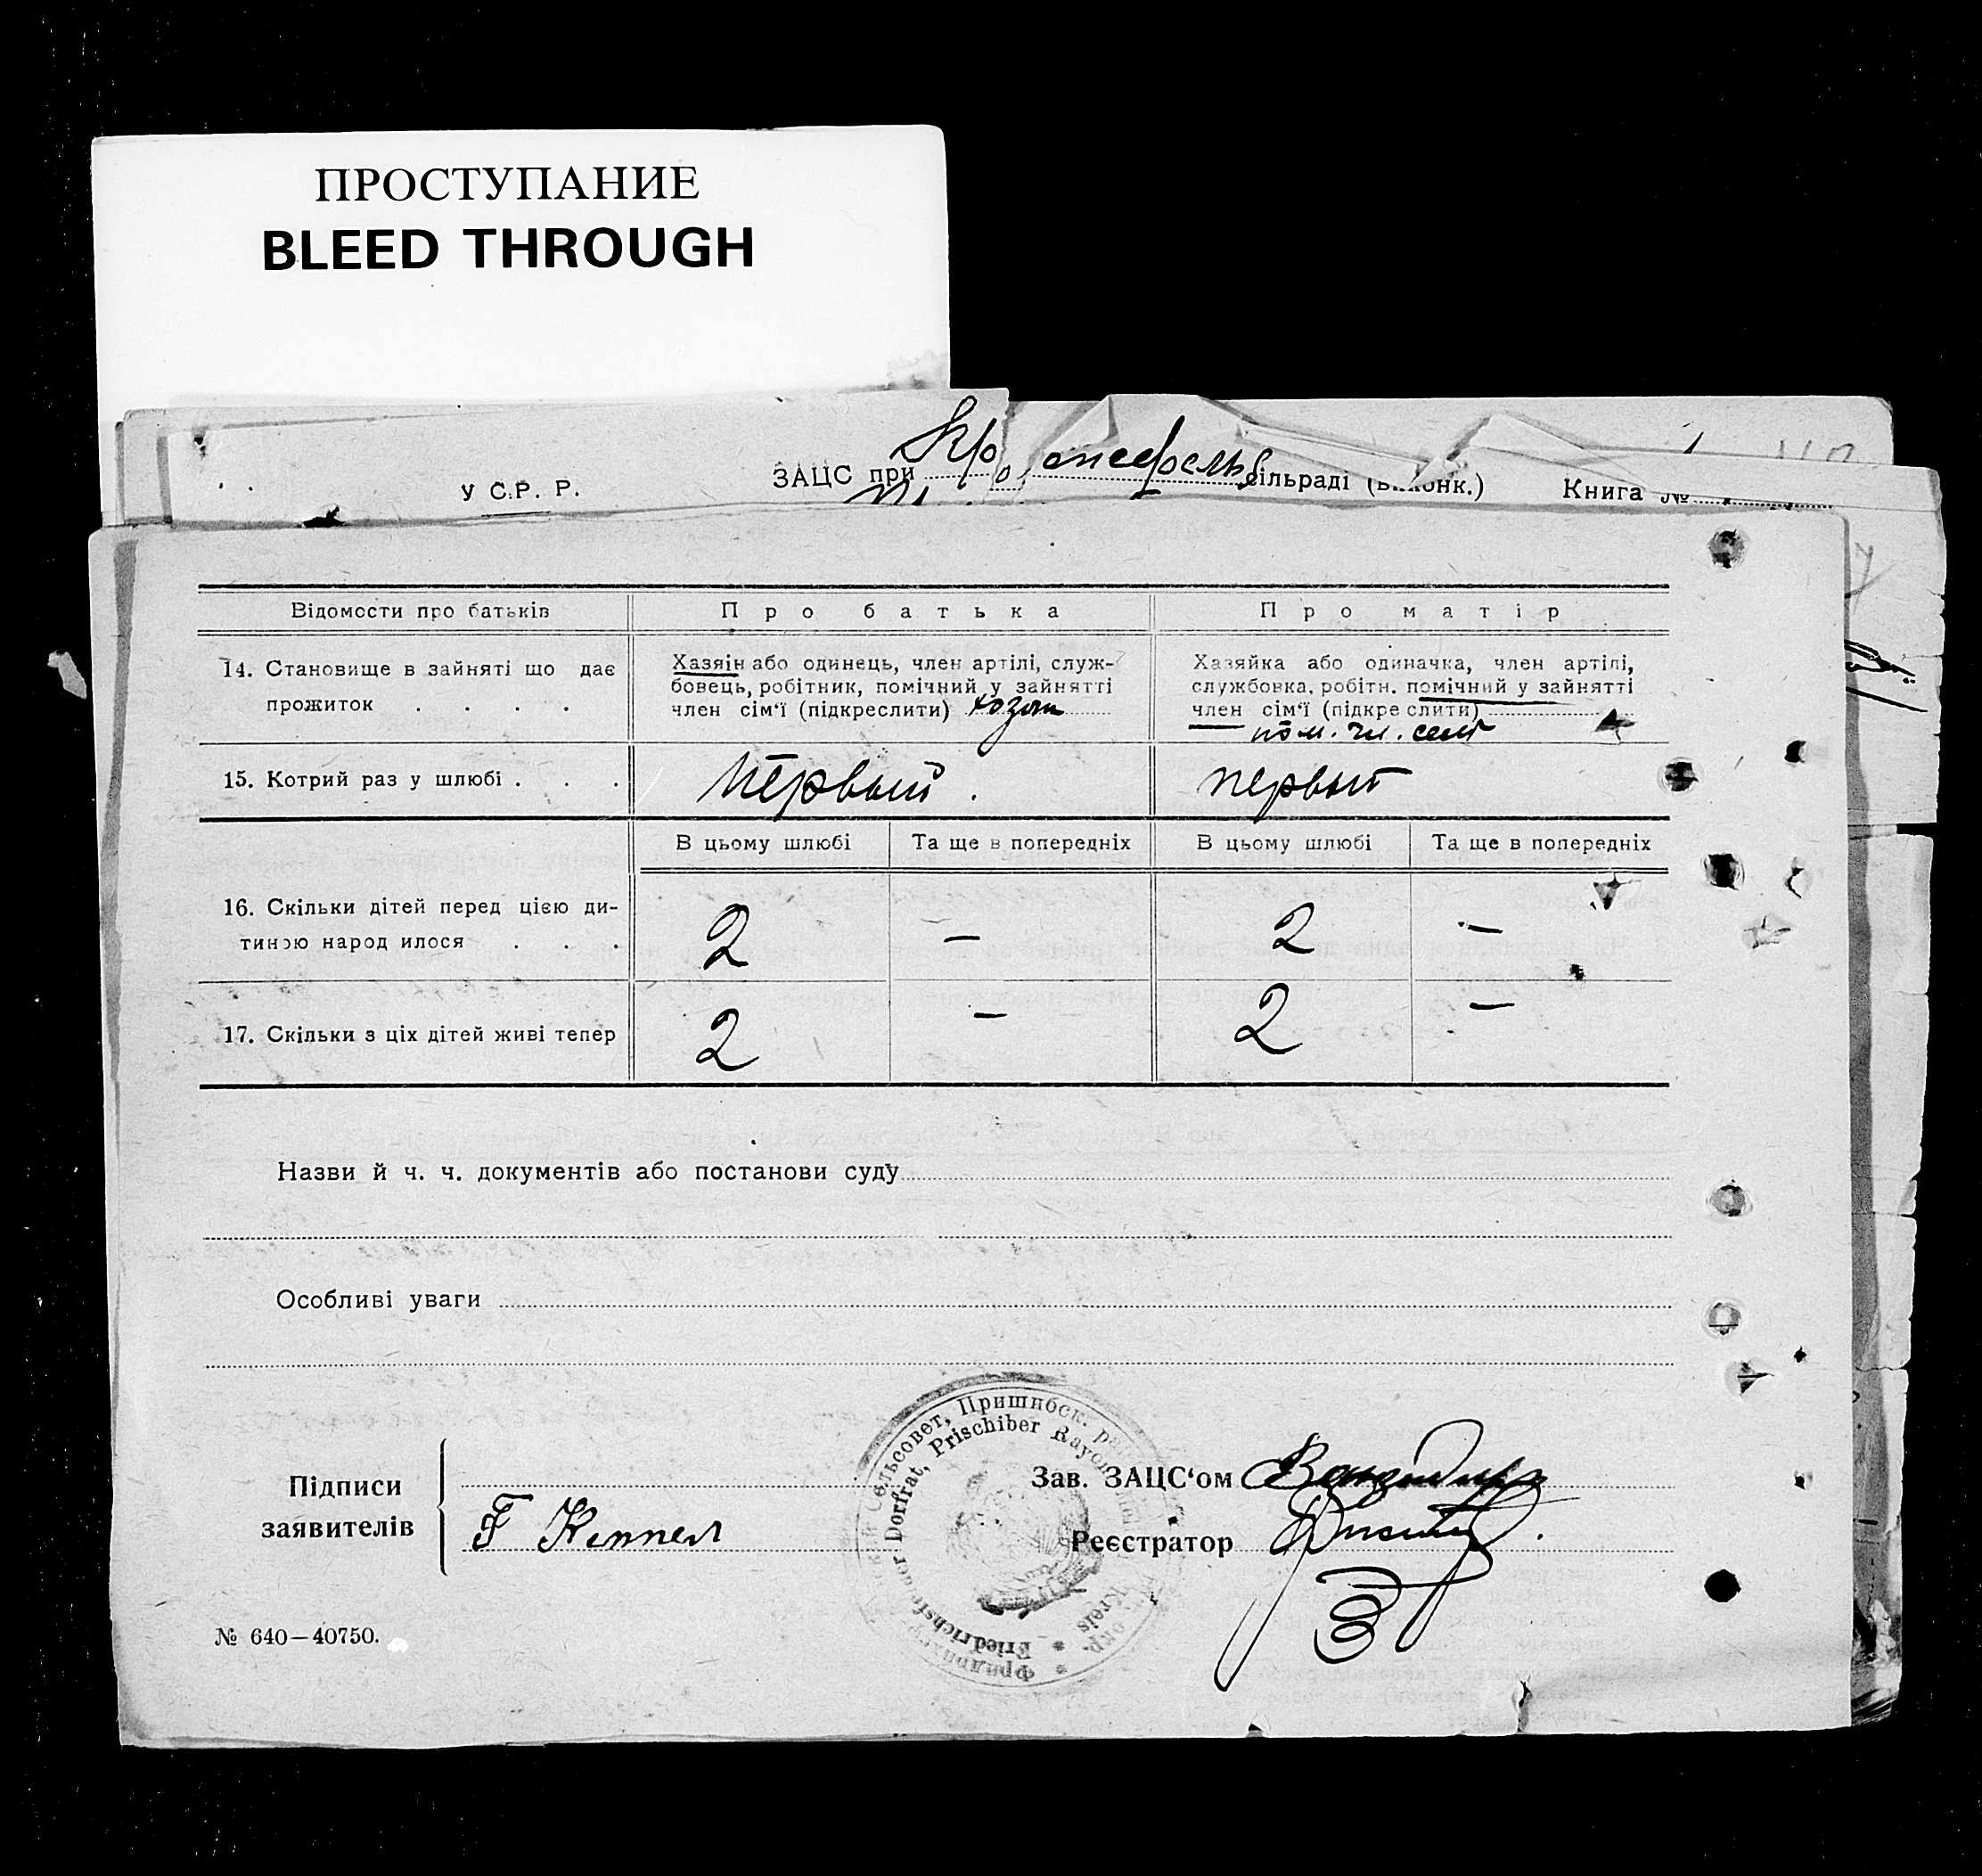 ПРОСТУПАНИЕ
BLEED THROUGH
У С.Р. Р.
ЗАЦС при сільраді Книга №
Відомости про батьків
Про батька
Про матір
14. Становище в зайняті що дає
прожиток . . . .
Хазяін або одинець, член артілі, служ-
бовець, робітник, помічний у зайнятті
член сім'ї (підкреслити) хозяин
Хазяйка або одиначка, член артілі,
службовка, робітн. помічний у зайнятті
член сім'ї (підкре слити)
пом. чл. сем
15. Котрий раз у шлюбі . . .
Первый.
первый
В цьому шлюбі
Та ще в попередніх
В цьому шлюбі
Та ще в попередніх
16. Скільки дітей перед цією ди-
тиною народ илося . . .
2 — 2 —
17. Скільки з ціх дітей живі тепер
2 — 2 —
Назви й ч. ч. документів або постанови суду
Особливі уваги
Підписи
заявителів
Г Кеппел
Сельсовет, Пришибск.
Dorfrat, Prischiber Rayon
Kreis * Friedrichsfelder
окр. *
Зав. ЗАЦС'ом
Реєстратор
№ 640—40750.